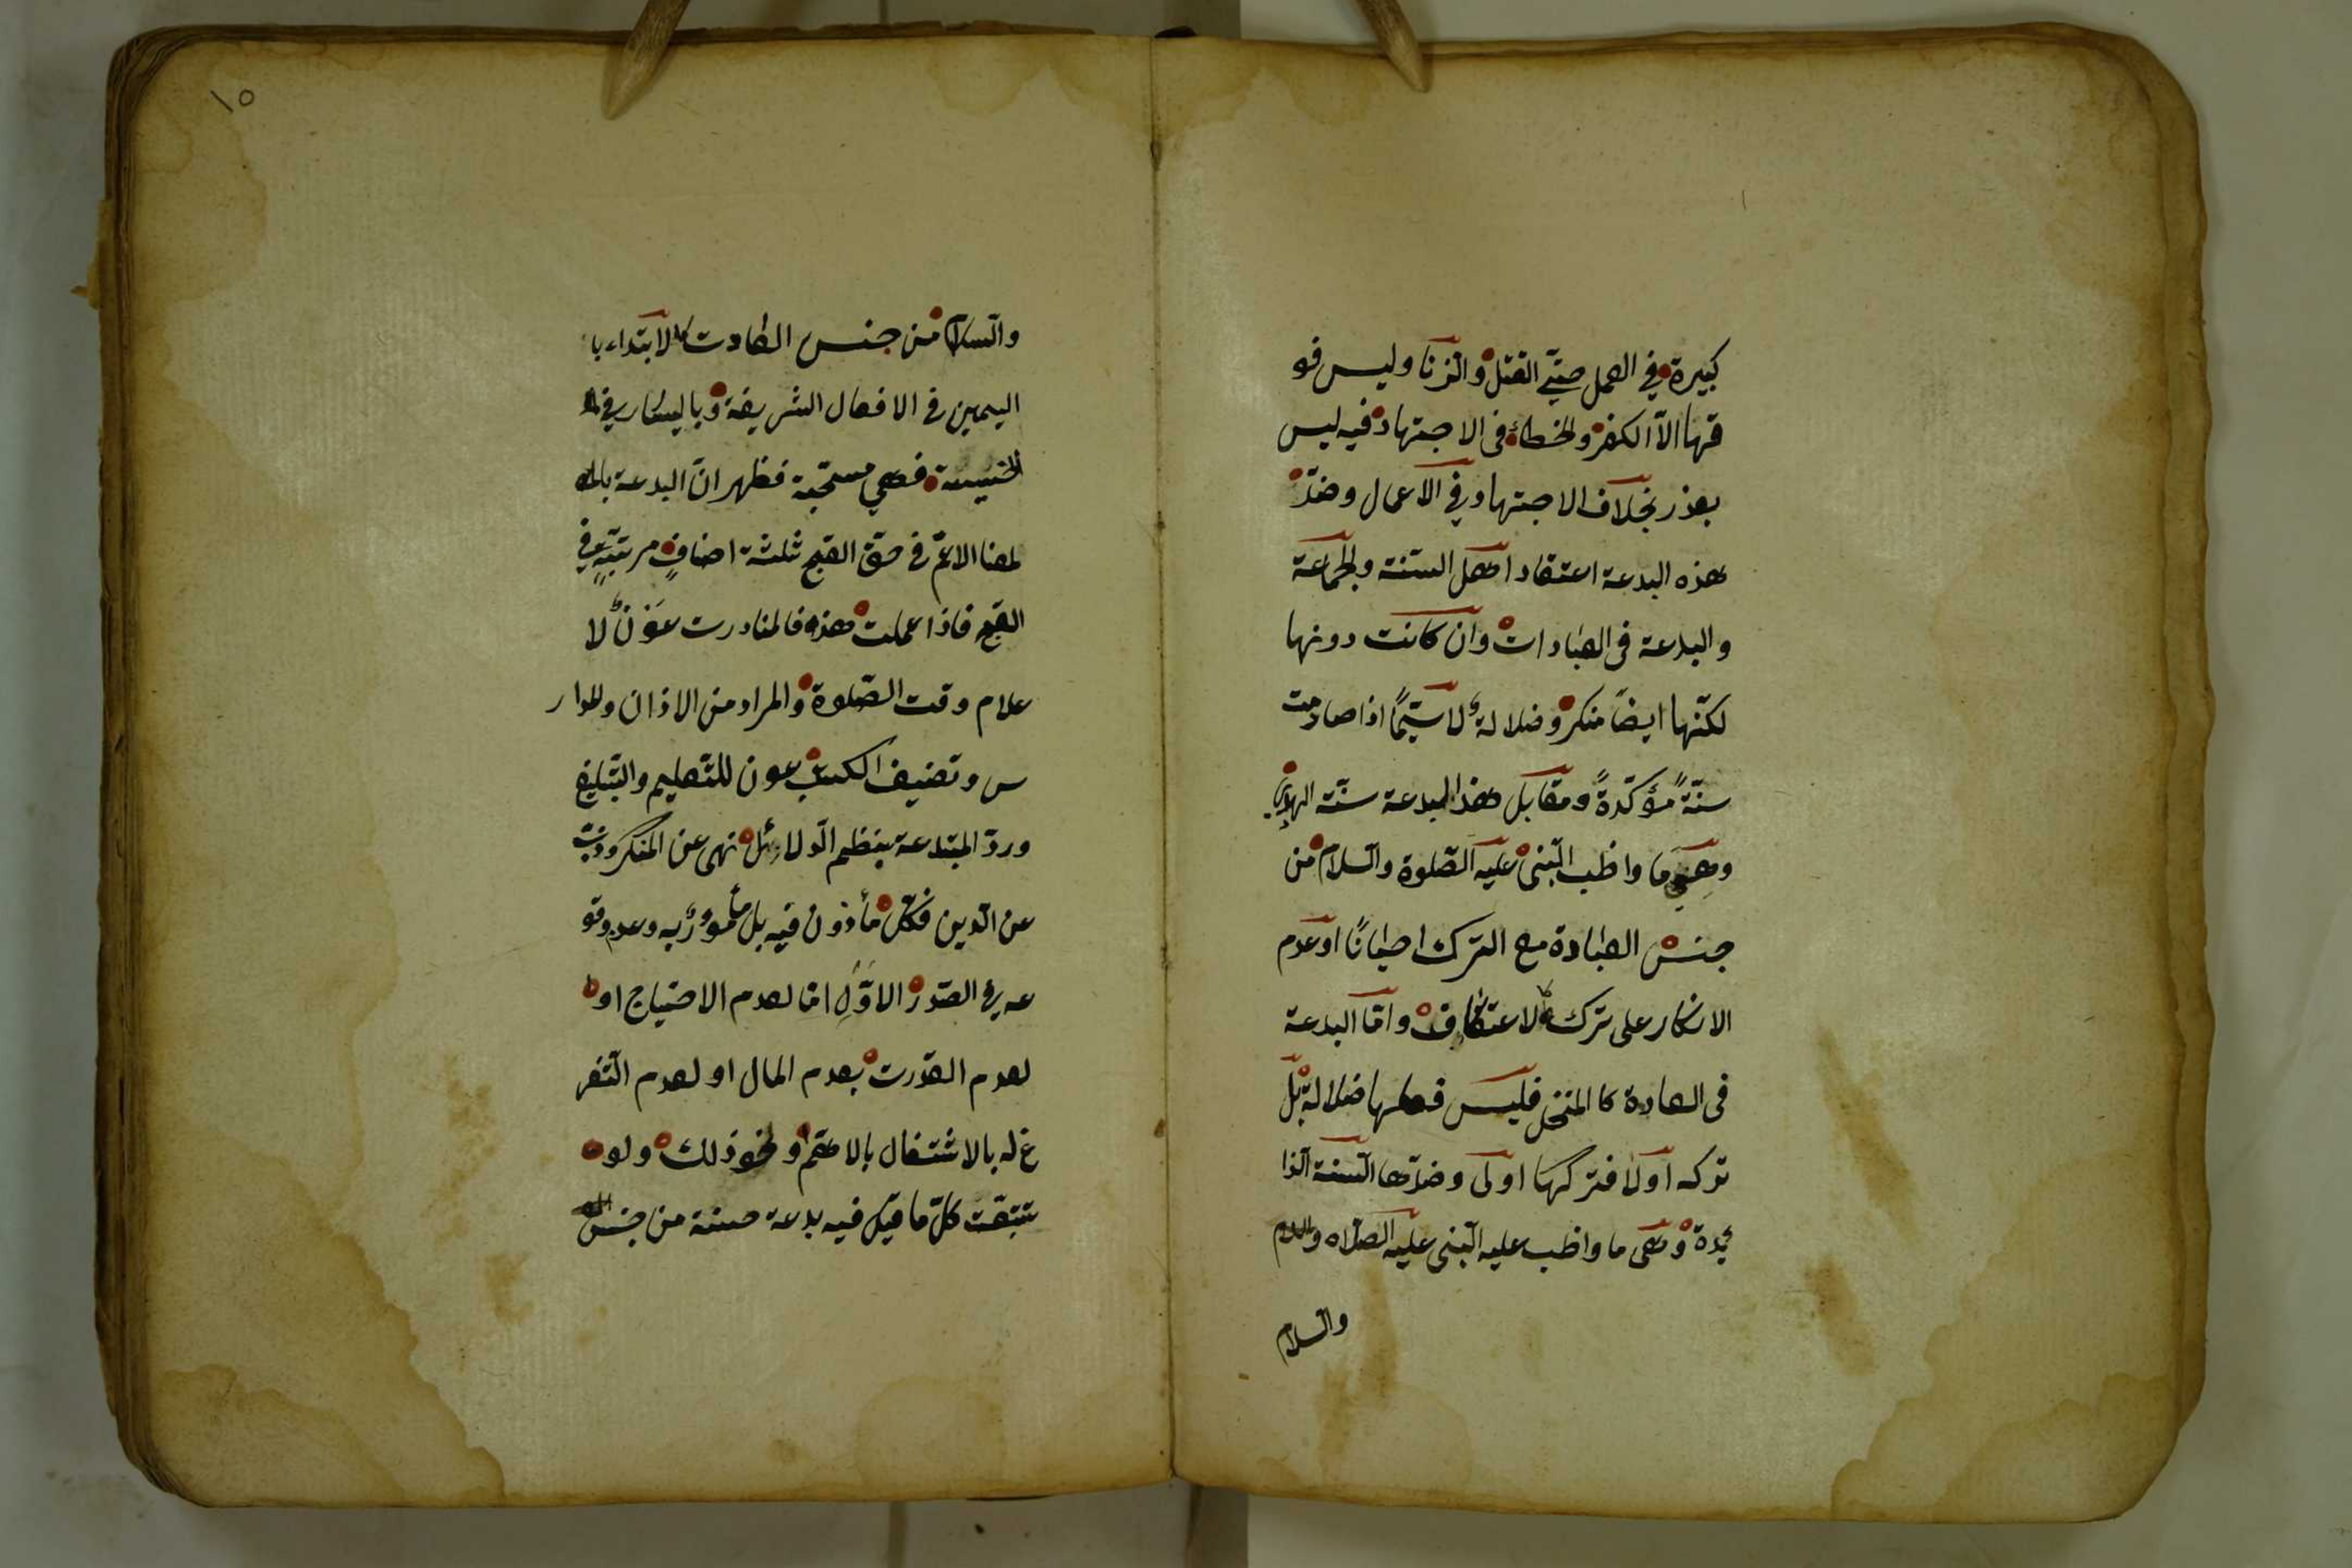 كبيرة في العمل حتّى القتل والزنا وليس فو
قها الاّ الكفر والخطاء فى الاجتهاد فيه ليس
بعذر بخلاف الاجتهاد في الاعمال وضدّ
هذه البدعة اعتقاد اهل السنة والجماعة
والبدعة فى العبادات وان كانت دونها
لكنّها ايضاً منكر وضلالة لا سيّماً اذا صادمت
سنّةً مؤكّدةً ومقابل هذا البدعة سنّة الهدى
وهي ما واظب النّبى عليه الصّلوة والسلام من
جنس العبادة مع الترك احيانًا او عدم
الانكار على تركه كالاعتكاف وامّا البدعة
فى العادة كا المنخل فليس فعلها ضلالة بل
تركه اولا فتركها اولى وضدّها السنة الذا
ئدة وهى ما واظب عليه النّبى عليه الصلاه والسلام
والسلام
١٥
والسلام من جنس العادت كالابتداء با
اليمين فى الافعال الشريفة وباليسار في ا
الخسيسة فهي مستحبّة فظهر انّ البدعة بالم
لمعنا الاعمّ فى حقّ القبح ثلثة اصنافٍ مرتبةٍ في
القبح فاذا عملت هذه فالمنادرت عَوْنٌ لا
علام وقت الصّلوة والمراد من الاذان والمدار
س وتصنيف الكتب عون للتّعليم والتبليغ
وردّ المبتدعة بنظم الدّلائل نهى عن المنكر وذبّ
عن الدين فكلّ مأذون فيه بل مأمورٌ به وعدم وقو
عه في الصّدر الاوّلِ امّا لعدم الاحتياج او
لعدم القدرت بعدم المال او لعدم التّفر
غ له بالاشتغال بالاهمّ او نحو ذلك ولو
تتبّعت كلّ ما قيل فيه بدعة حسنة من جنس